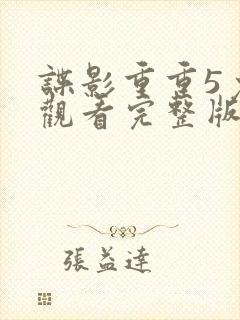 諜影重重5
觀看完整版
張益達